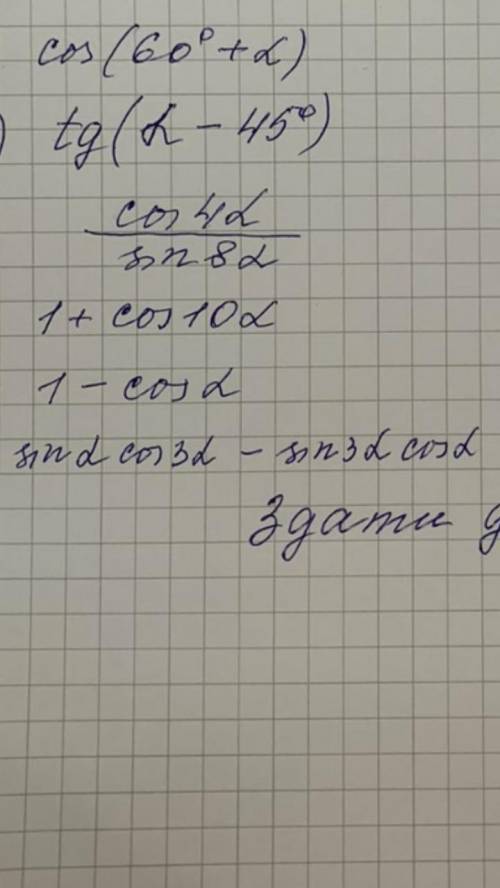 cos(60° + α)
) tg(α - 45°)
cos 4α
sin 8α
1 + cos 10α
1 - cos α
sin α cos 3α - sin 3α cos α
Здати